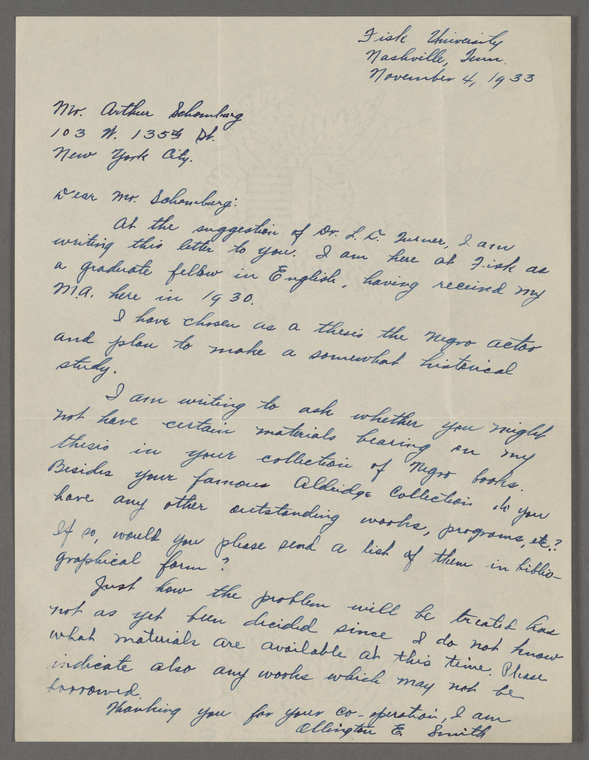 Fisk University
Nashville, Tenn.
November 4, 1933
Mr. Arthur Schomburg
103 W. 135th St.
New York City.
Dear Mr. Schomburg:
At the suggestion of Dr. L. D. Turner, I am
writing this letter to you. I am here at Fisk as
a graduate fellow in English, having received my
M.A. here in 1930.
I have chosen as a thesis the Negro actor
and plan to make a somewhat historical
study.
I am writing to ask whether you might
not have certain materials bearing on my
thesis in your collection of Negro books.
Besides your famous Aldridge Collection do you
have any other outstanding works, programs, etc.?
If so, would you please send a list of them in biblio-
graphical form?
Just how the problem will be treated has
not as yet been decided since I do not know
what materials are available at this time. Please
indicate also any works which may not be
borrowed.
Thanking you for your co-operation, I am
Ollington E. Smith